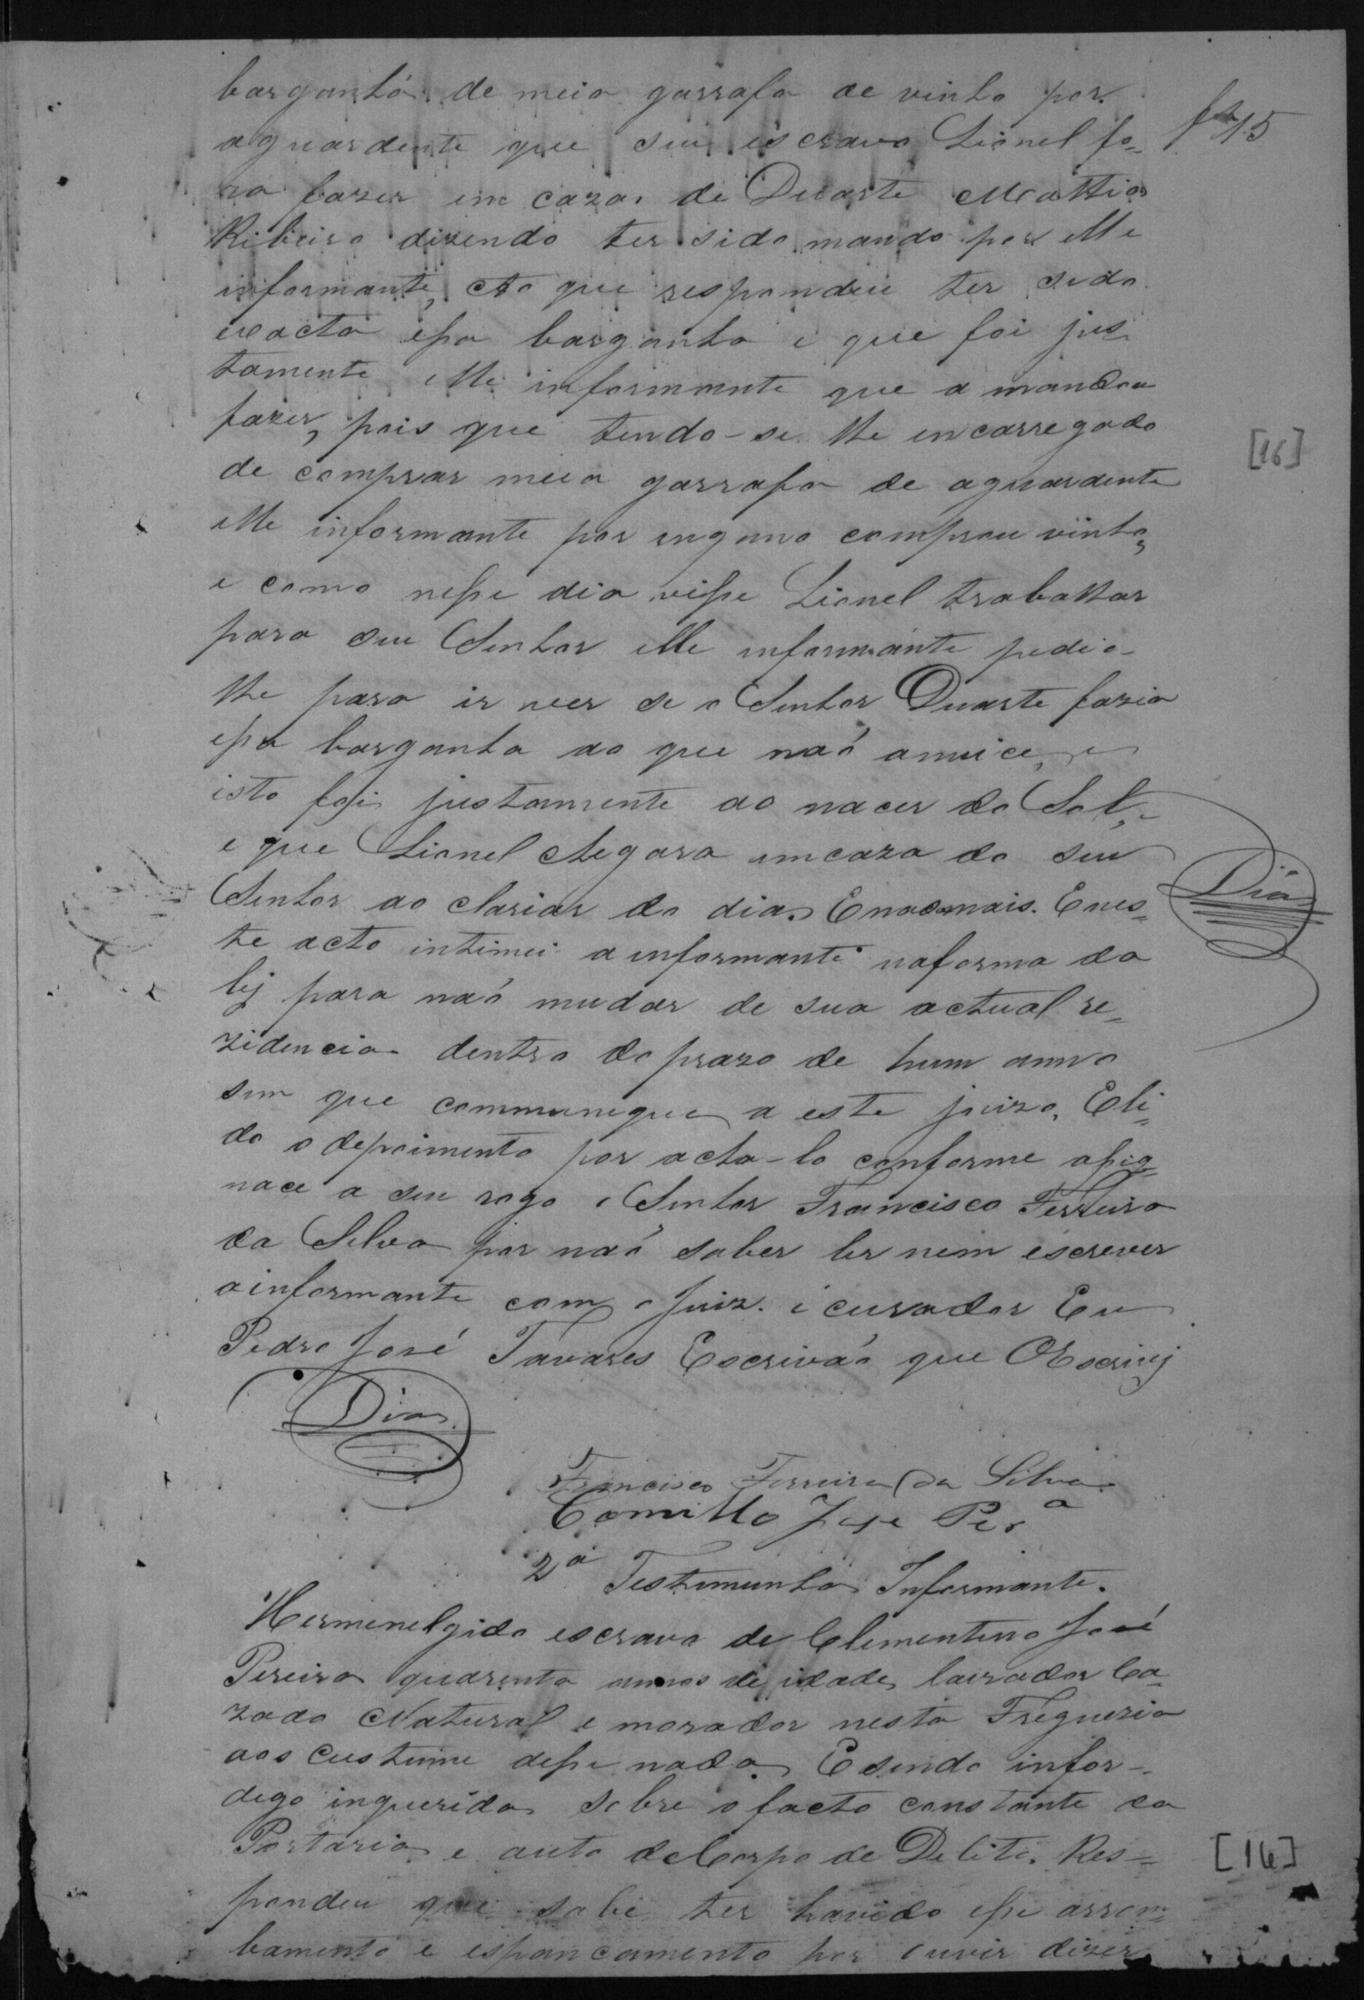 barganhá de meia garrafa de vinho por
aguardente que seu escravo Lionel fo-
ra fazer em caza de Duarte Mathias
Ribeiro dizendo ter sido mando por elle
informante, Ao que respondeu ter sido
exacta essa barganha e que foi jus-
tamente elle informante que a mandou
fazer, pois que tendo-se lhe encarregado
de comprar meia garrafa de aguardente
elle informante por engano comprou vinho,
e como nesse dia visse Lionel trabalhar
para seu Senhor elle informante pedio-
lhe para ir ver se o Senhor Duarte fazia
essa barganha ao que não annuice, e
isto foi justamente ao nacer do Sol,
e que Lionel chegara em caza do seu
Senhor ao clariar do dia. E nada mais. E nes-
te acto intimei a informante na forma da
lej para não mudar de sua actual re-
zidencia dentro do prazo de hum anno
sem que communique a este juizo, E li-
do o depoimento por acha-lo conforme assig-
nace a seu rogo o Senhor Francisco Ferreira
da Silva por não saber ler nem escrever
a informante com o Juiz. e curador Eu
Pedro José Tavares Escrivão que O Escrivij
Dias
Francisco Ferreira da Silva
Camillo Jose Per.ª
2ª Testimunha Informante.
Hermenelgido escravo de Clementino José
Pereira quarenta annos de idade, lavrador Ca-
zado Natural e morador nesta Freguezia
aos Custume disse nada. E sendo infor-
digo inquerido sobre o facto constante da
Portaria e auto de Corpo de Delito. Res-
pondeu que sabe ter havido esse arrom-
bamento e espancamento por ouvir dizer
fl 15
[16]
Dias
[16]